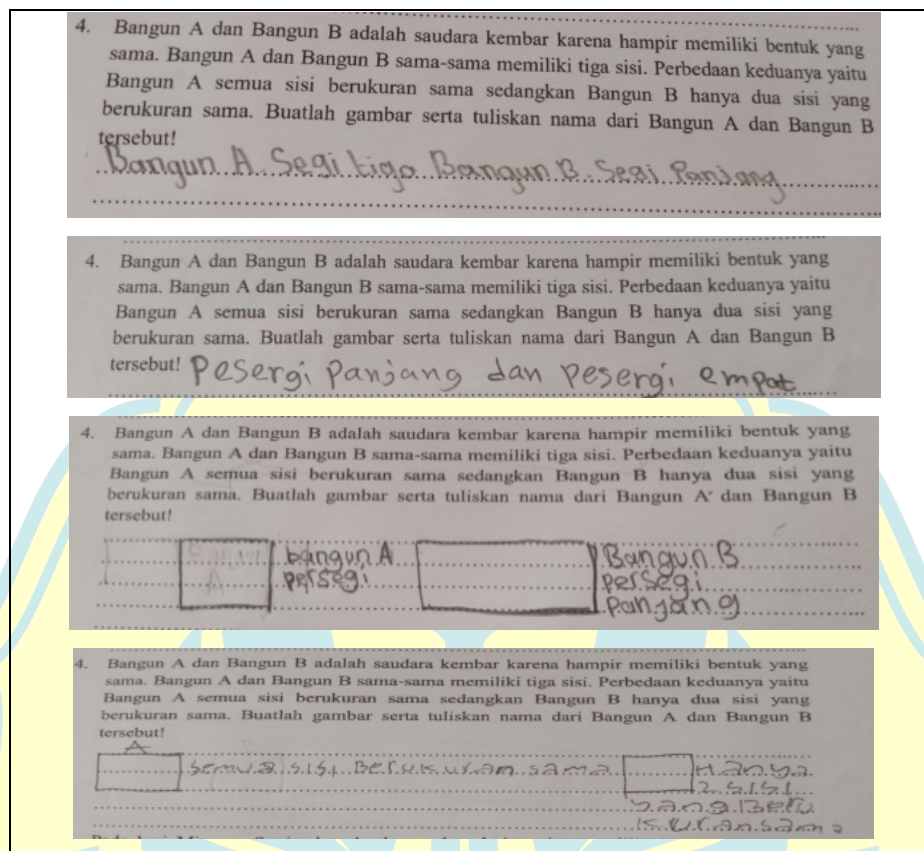 4. Bangun A dan Bangun B adalah saudara kembar karena hampir memiliki bentuk yang
sama. Bangun A dan Bangun B sama-sama memiliki tiga sisi. Perbedaan keduanya yaitu
Bangun A semua sisi berukuran sama sedangkan Bangun B hanya dua sisi yang
berukuran sama. Buatlah gambar serta tuliskan nama dari Bangun A dan Bangun B
tersebut!
Bangun A Segi tiga Bangun B Segi Panjang
4. Bangun A dan Bangun B adalah saudara kembar karena hampir memiliki bentuk yang
sama. Bangun A dan Bangun B sama-sama memiliki tiga sisi. Perbedaan keduanya yaitu
Bangun A semua sisi berukuran sama sedangkan Bangun B hanya dua sisi yang
berukuran sama. Buatlah gambar serta tuliskan nama dari Bangun A dan Bangun B
tersebut! Pesergi Panjang dan Pesergi empat
4. Bangun A dan Bangun B adalah saudara kembar karena hampir memiliki bentuk yang
sama. Bangun A dan Bangun B sama-sama memiliki tiga sisi. Perbedaan keduanya yaitu
Bangun A semua sisi berukuran sama sedangkan Bangun B hanya dua sisi yang
berukuran sama. Buatlah gambar serta tuliskan nama dari Bangun A dan Bangun B
tersebut!
bangun A
persegi
Bangun B
persegi
panjang
4. Bangun A dan Bangun B adalah saudara kembar karena hampir memiliki bentuk yang
sama. Bangun A dan Bangun B sama-sama memiliki tiga sisi. Perbedaan keduanya yaitu
Bangun A semua sisi berukuran sama sedangkan Bangun B hanya dua sisi yang
berukuran sama. Buatlah gambar serta tuliskan nama dari Bangun A dan Bangun B
tersebut!
A
semua sisi Berukuran sama
Hanya
2 sisi
yang Beru
kuran sama